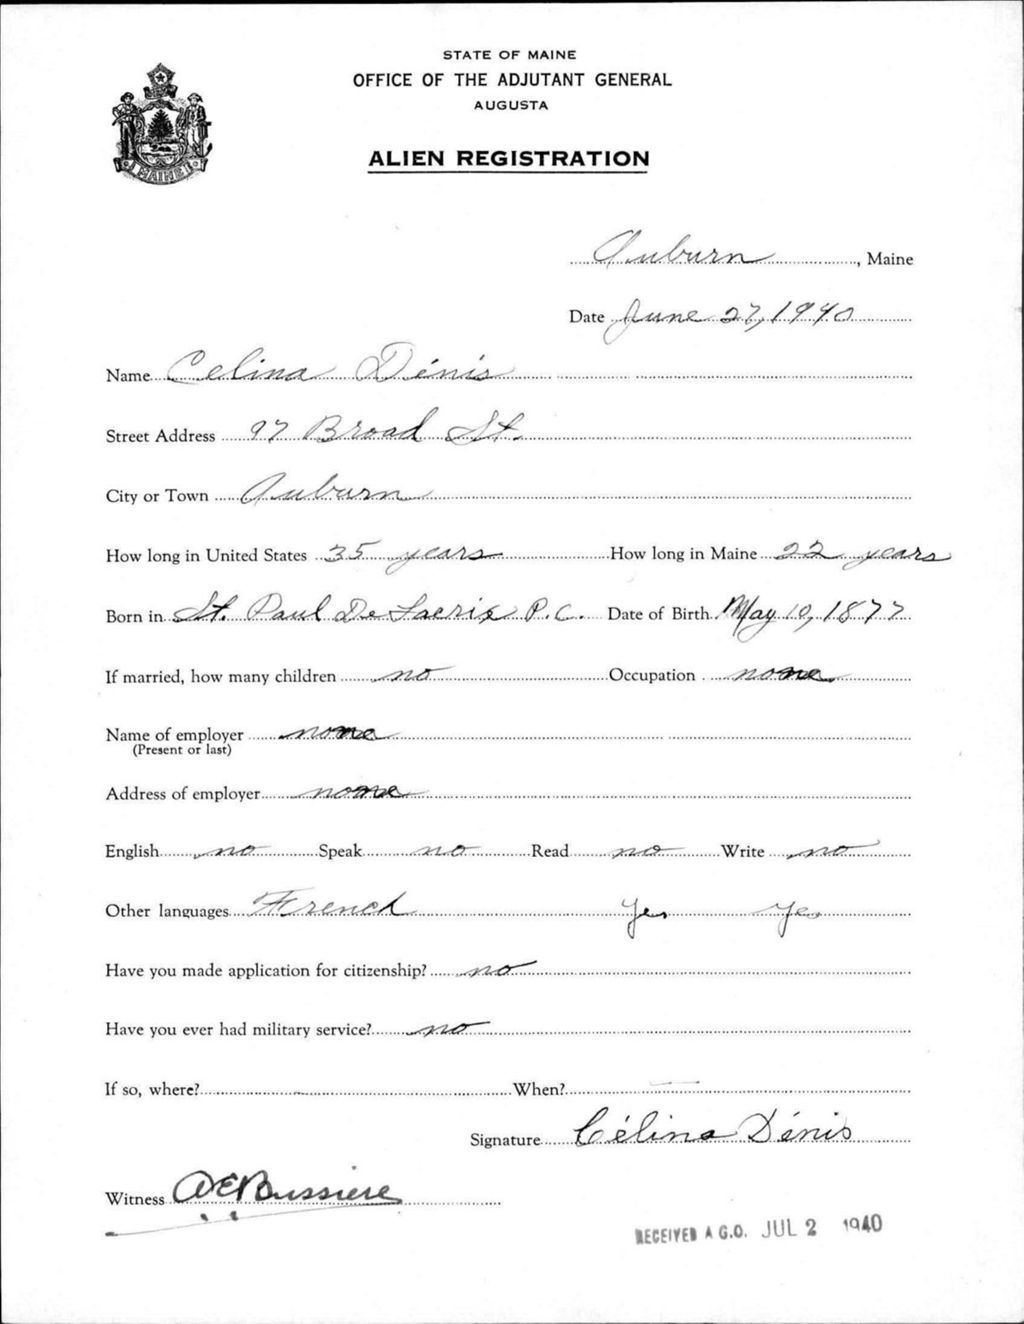 STATE OF MAINE
OFFICE OF THE ADJUTANT GENERAL
AUGUSTA
ALIEN REGISTRATION
MAINE
Auburn, Maine
Date June 27, 1940
Name Celina Dénis
Street Address 97 Broad St.
City or Town Auburn
How long in United States 35 years How long in Maine 22 years
Born in St. Paul De Lacrix P.C. Date of Birth May 10, 1877
If married, how many children no Occupation none
Name of employer none
(Present or last)
Address of employer none
English no Speak no Read no Write no
Other languages French Yes Yes
Have you made application for citizenship? no
Have you ever had military service? no
If so, where? When?
Signature Célina Dénis
Witness A E Bussiere
RECEIVED A G.O. JUL 2 1940